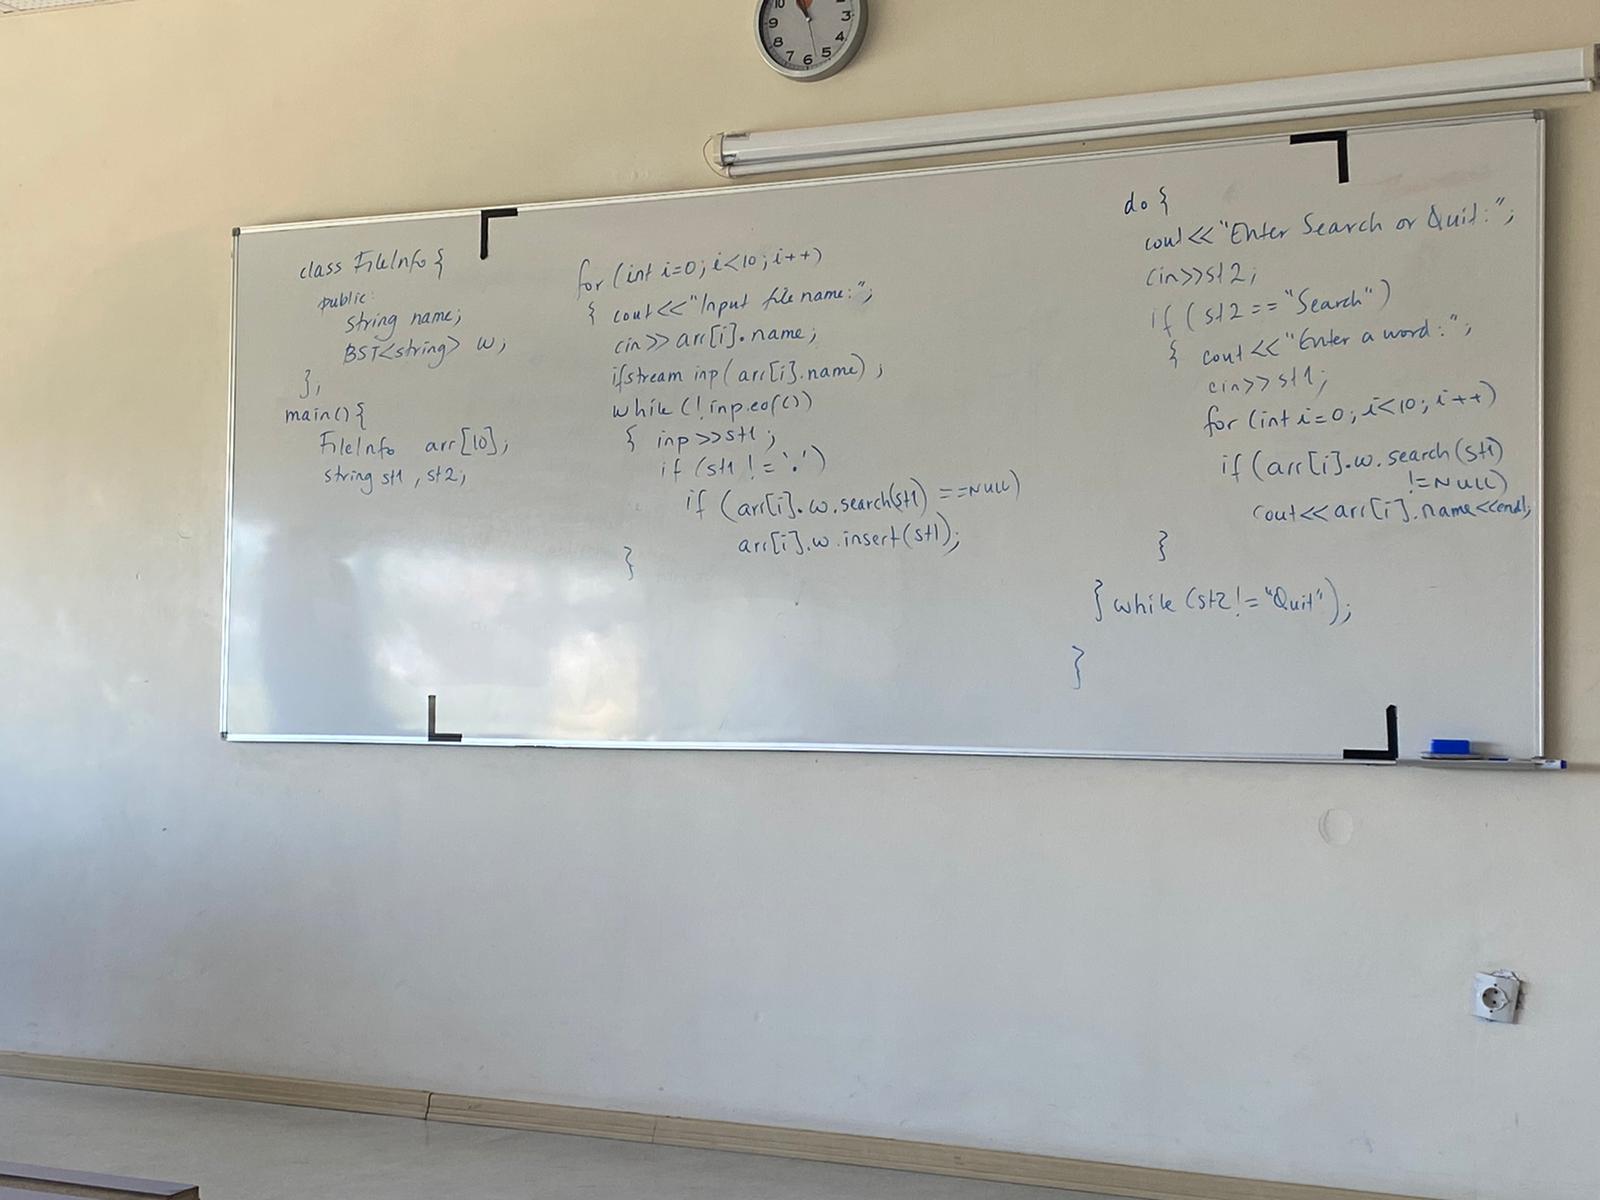 10
9
8
7
6
5
4
3
class FileInfo {
public:
string name;
BST<string> w;
};
main() {
FileInfo arr[10];
string st1, st2;
for (int i=0; i<10; i++)
{ cout<<"Input file name:";
cin>>arr[i].name;
ifstream inp(arr[i].name);
while (!inp.eof())
{ inp>>st1;
if (st1 != '.')
if (arr[i].w.search(st1) ==NULL)
arr[i].w.insert(st1);
}
do {
cout<<"Enter Search or Quit:";
cin>>st2;
if (st2 == "Search")
{ cout<<"Enter a word:";
cin>>st1;
for (int i=0; i<10; i++)
if (arr[i].w.search(st1)
!=NULL)
cout<<arr[i].name<<endl;
}
} while (st2!="Quit");
}